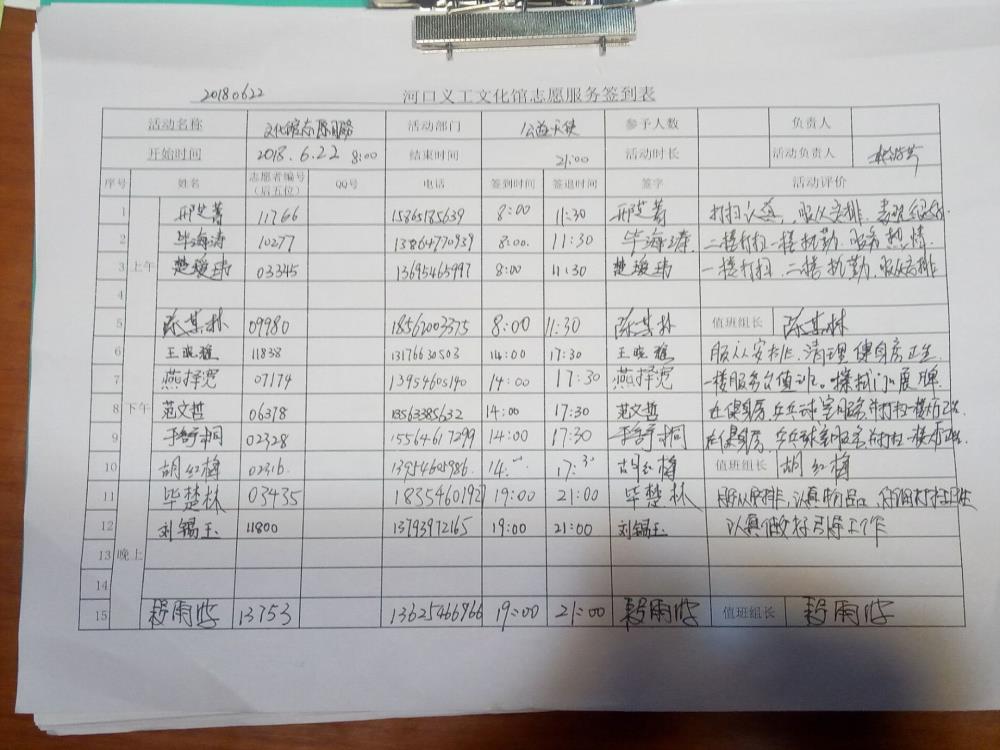 20180622 河口义工文化馆志愿服务签到表
活动名称 文化馆志愿服务 活动部门 公益天使 参予人数 负责人
开始时间 2018.6.22 8:00 结束时间 21:00 活动时长 活动负责人
序号 姓名 志愿者编号（后五位） QQ号 电话 签到时间 签退时间 签字 活动评价
上午
1 邢芝菁 11766 15865185639 8:00 11:30 邢芝菁 打扫认真,服从安排,表现
2 毕海涛 10277 13864770939 8:00. 11:30 毕海涛 二楼打扫一楼执勤.服务热情.
3 楚璇玮 03345 13695465997 8:00 11:30 楚璇玮 一楼打扫.二楼执勤,服从安排
4
5 陈其林 09980 18562003375 8:00 11:30 陈其林 值班组长 陈其林
下午
6 王晓雅 11838 13176630503 14:00 17:30 王晓雅 服从安排,清理健身房卫生
7 燕择宽 07174 13954605140 14:00 17:30 燕择宽 一楼服务台值班。擦拭门口展牌
8 范文哲 06378 13563385632 14:00 17:30 范文哲 在健身房,乒乓球室服务并打扫一楼
9 02328 15564617299 14:00 17:30 在健身房,乒乓球室服务并打扫一楼
10 胡红梅 02316. 13954605986. 14. 17:30 胡红梅 值班组长 胡红梅
晚上
11 毕楚林 03435 1835460192 19:00 21:00 毕楚林 服从安排,认真
12 刘锡玉 11800 13793972165 19:00 21:00 刘锡玉 认真做好引导工作
13
14
15 段雨 13753 13625466966 19:00 21:00 段雨 值班组长 段雨